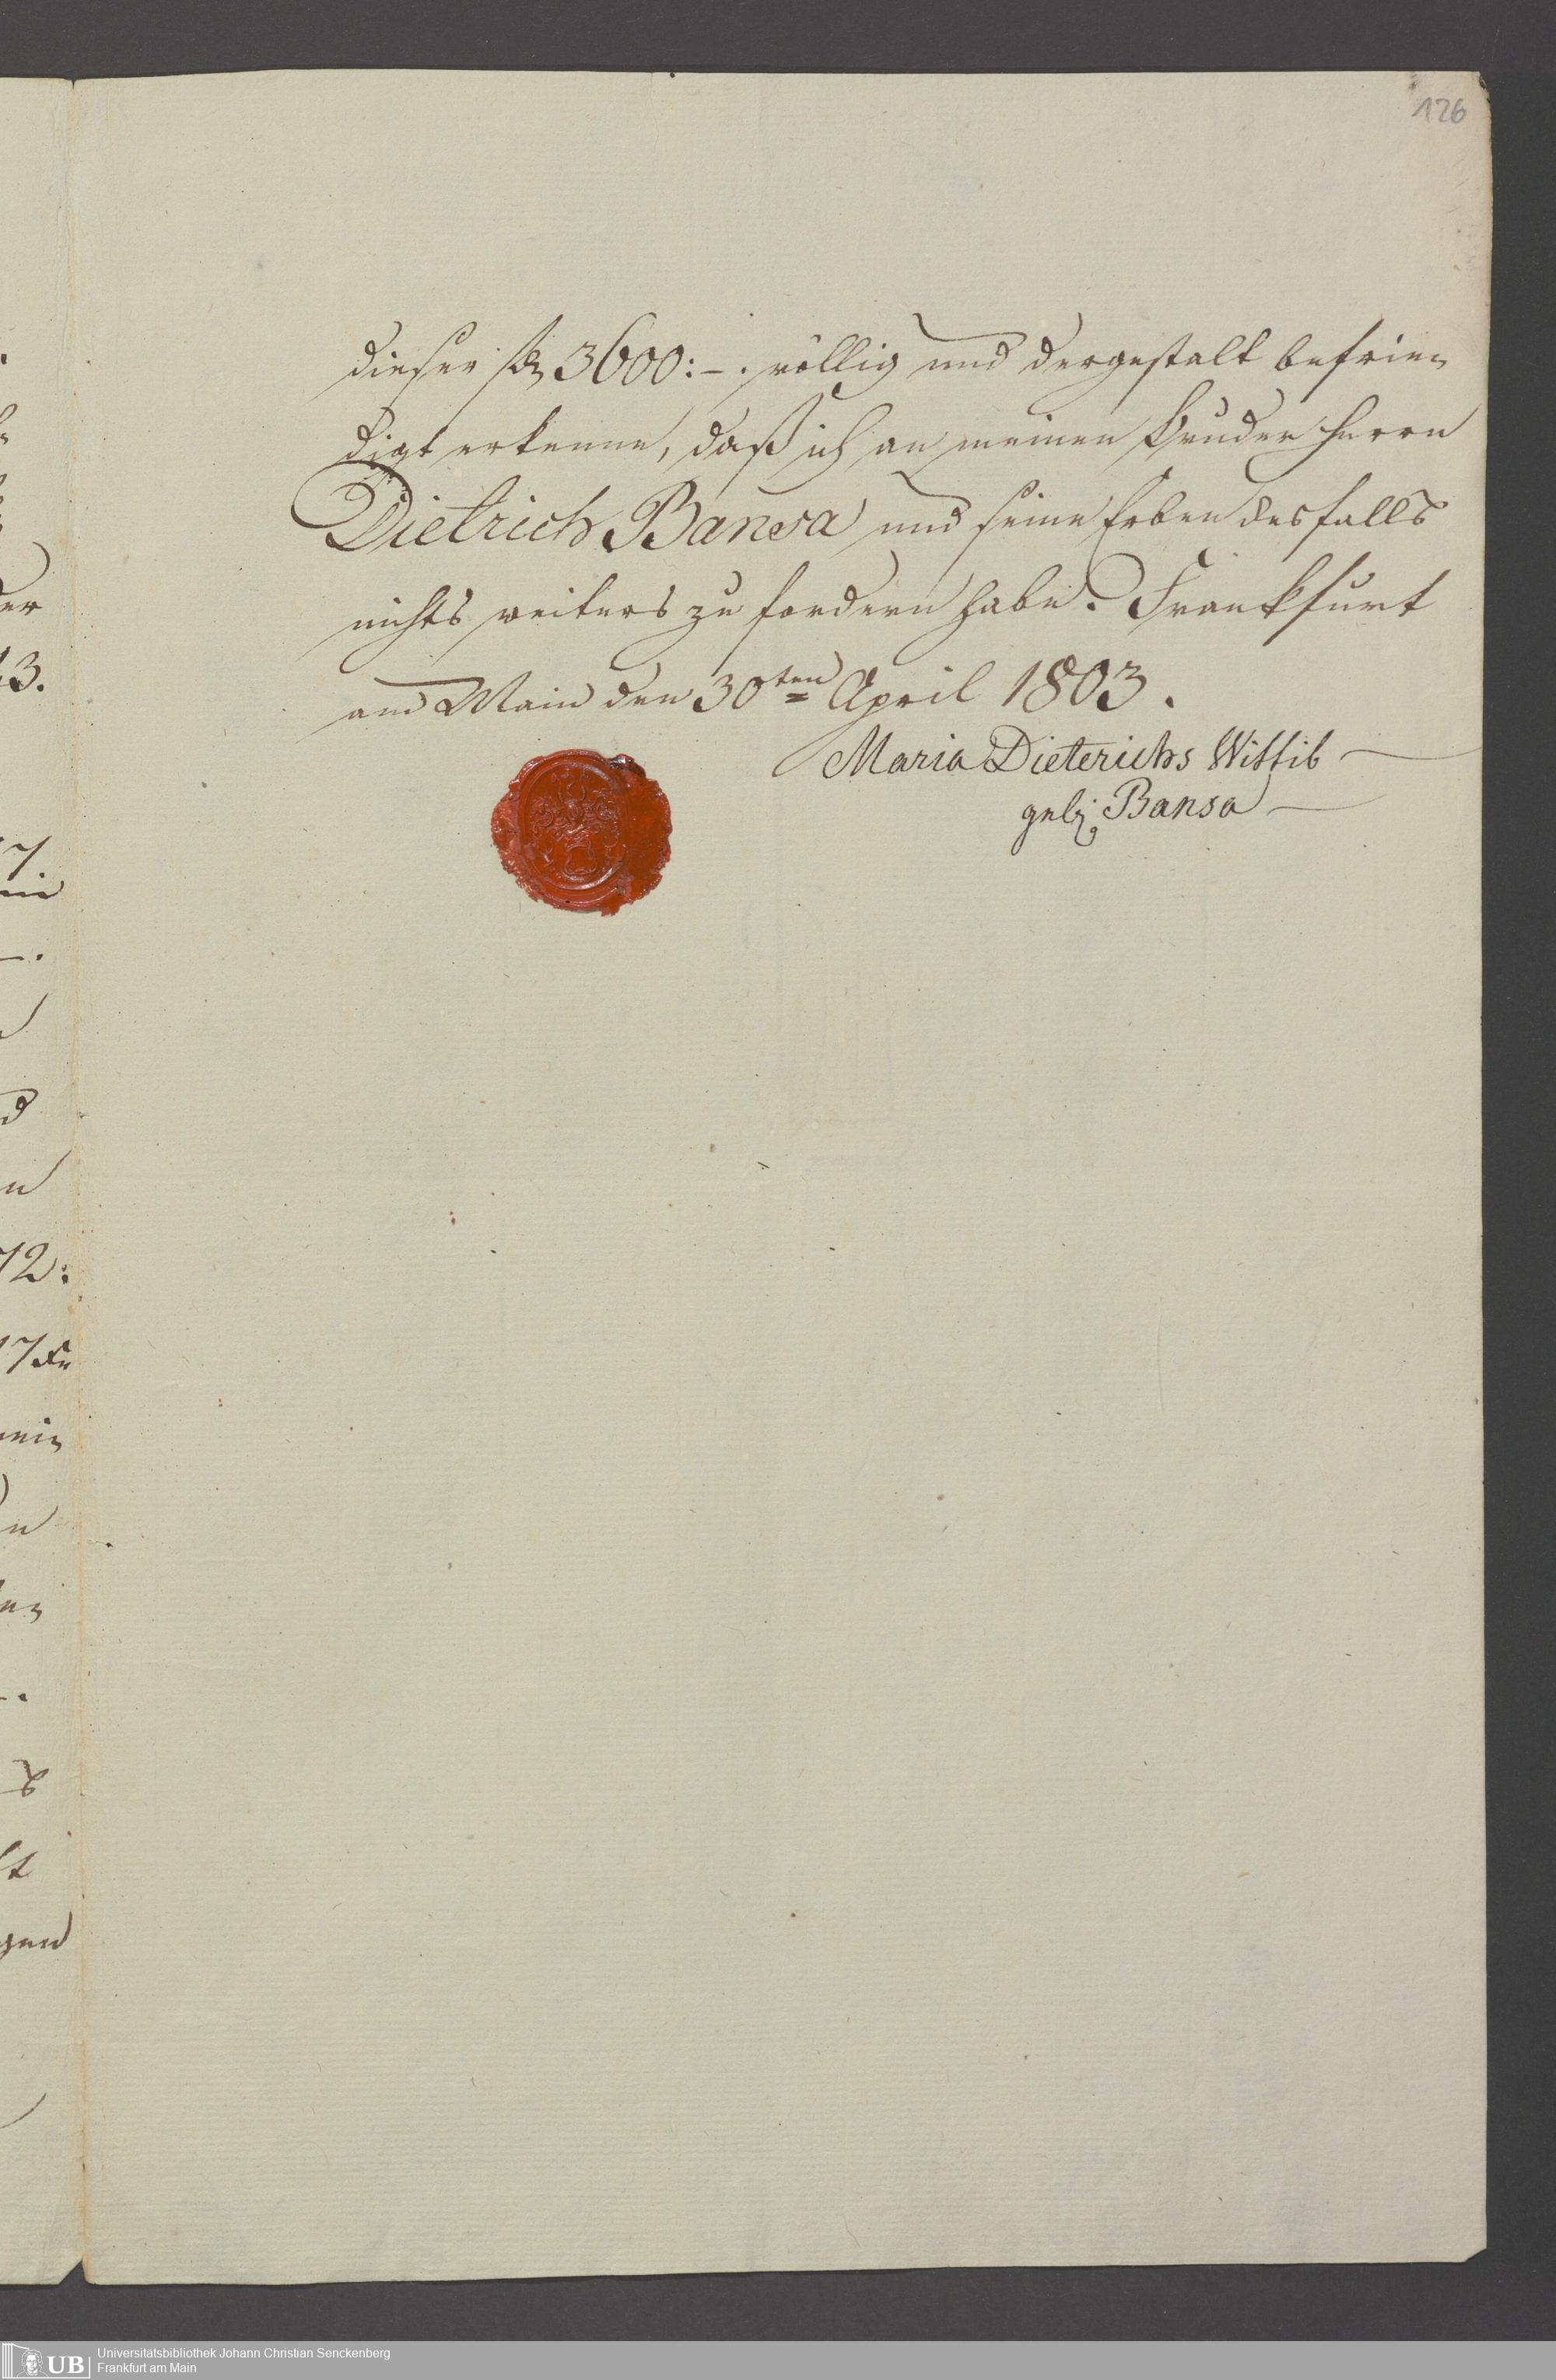 126
dieser fl 3600:–. völlig und dergestalt befrie-
digt erkenne, daß ich an meinen Bruder Herrn
Dietrich Bansa und seine Erben desfalls
nichts weiters zu fordern habe. Frankfurt
am Main den 30ten April 1803.
Maria Dieterichs Wittib
geb. Bansa
der
13.
17
72:
gen
UB
Universitätsbibliothek Johann Christian Senckenberg
Frankfurt am Main